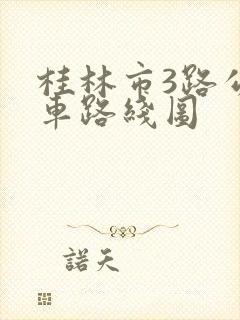 桂林市3路公
車路綫圖
諾天